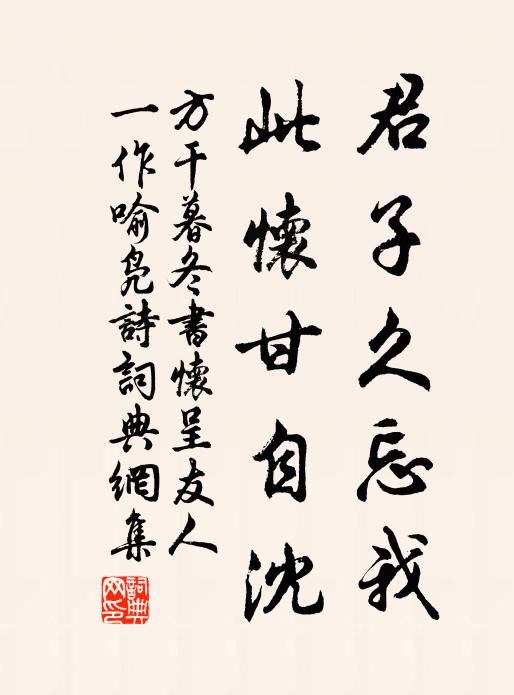 君子久忘我
此懷甘自沈
方干暮冬書懷呈友人
一作喻鳧詩詞典網集
詞典
网印